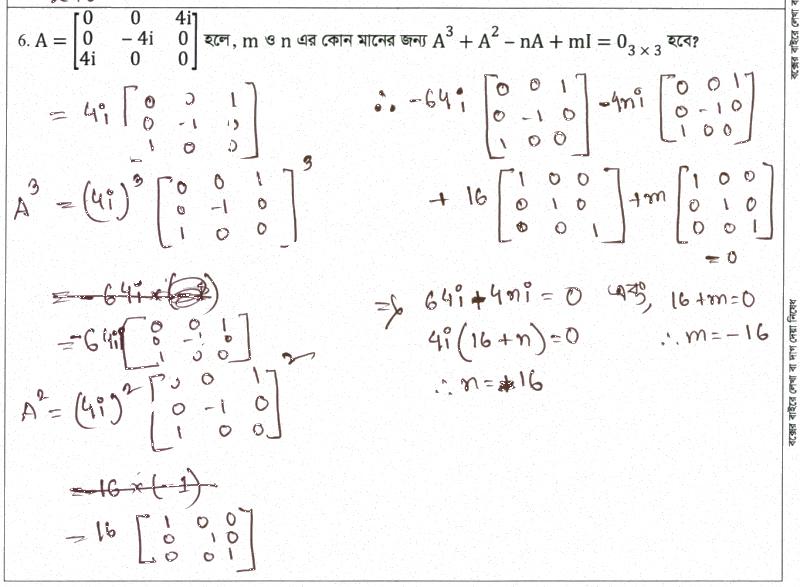 6. A = [0 0 4i; 0 - 4i 0; 4i 0 0] হলে, m ও n এর কোন মানের জন্য A³ + A² – nA + mI = 0₃ₓ₃ হবে?
= 4i [0 0 1; 0 -1 0; 1 0 0]
A³ = (4i)³ [0 0 1; 0 -1 0; 1 0 0]³
= -64i [0 0 1; 0 -1 0; 1 0 0]
A² = (4i)² [0 0 1; 0 -1 0; 1 0 0]²
= -16 × (-1)
= 16 [1 0 0; 0 1 0; 0 0 1]
∴ -64i [0 0 1; 0 -1 0; 1 0 0] - 4ni [0 0 1; 0 -1 0; 1 0 0]
+ 16 [1 0 0; 0 1 0; 0 0 1] + m [1 0 0; 0 1 0; 0 0 1]
= 0
⇒ 64i + 4ni = 0 এবং, 16 + m = 0
4i (16 + n) = 0 ∴ m = -16
∴ n = 16
বক্সের বাইরে লেখা বা দাগ দেয়া নিষেধ